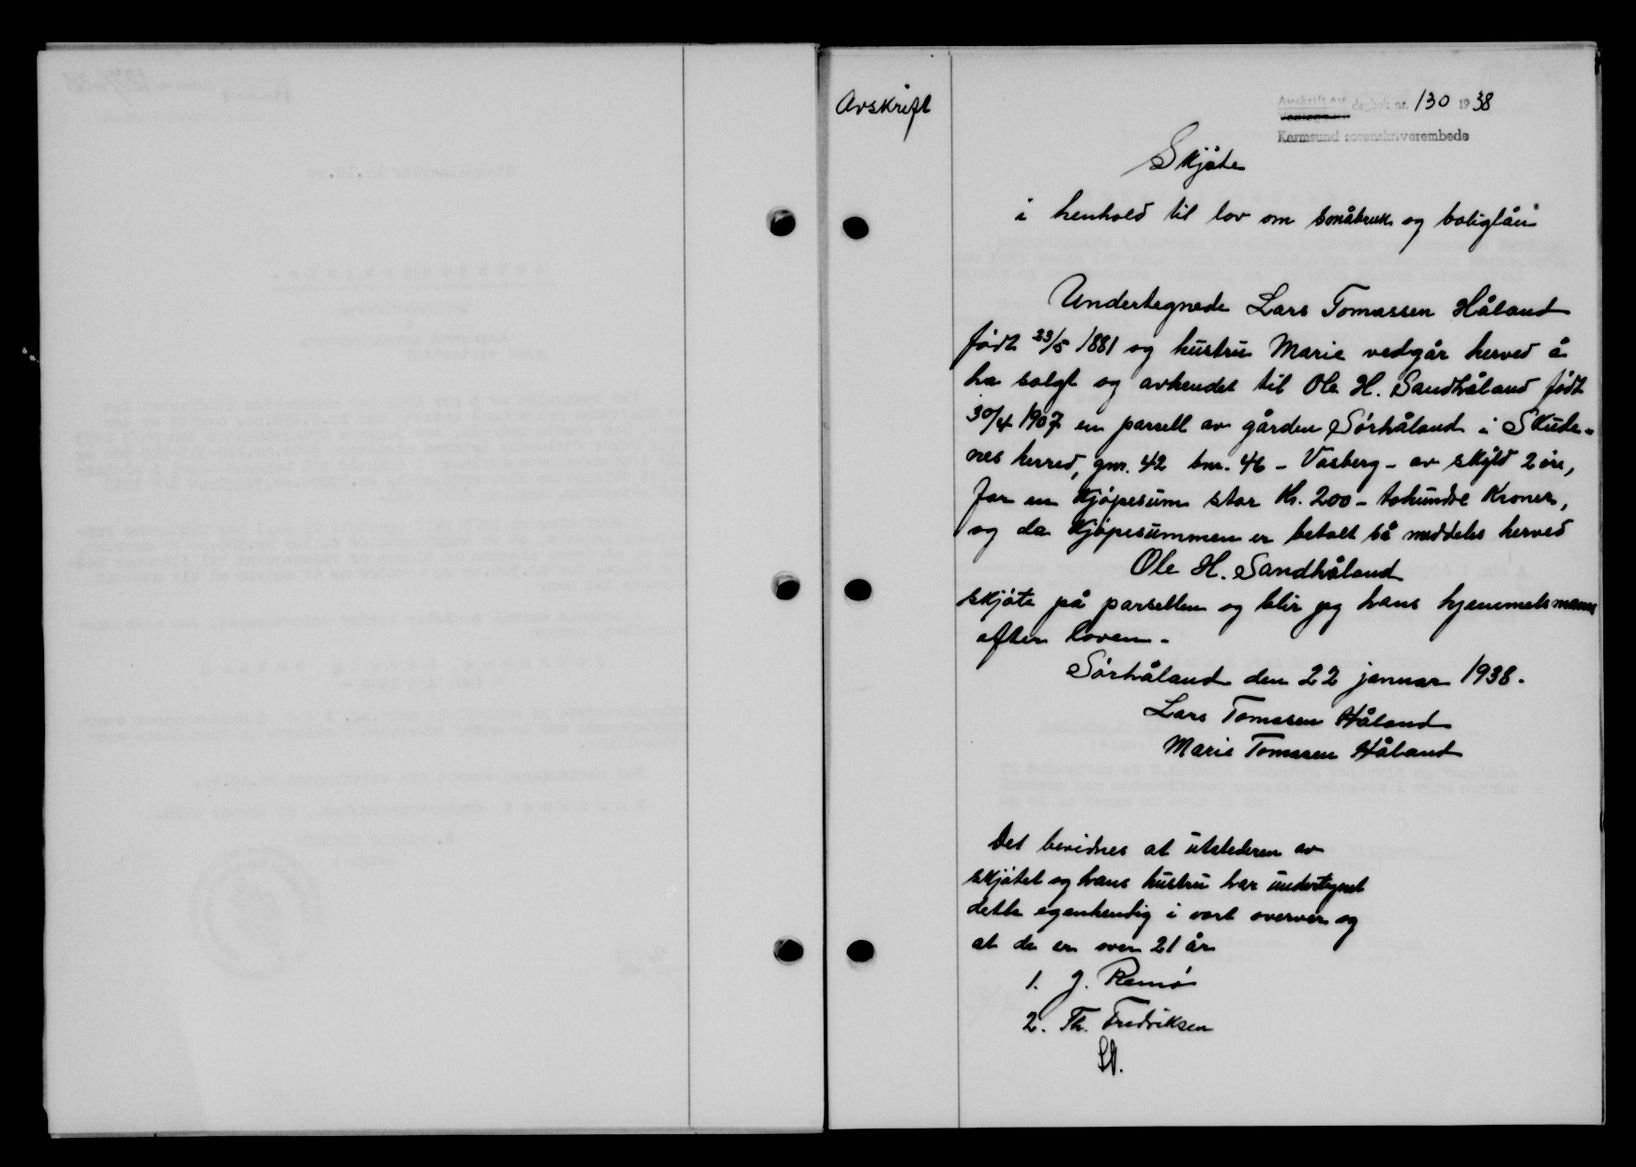 Avskrift
Avskrift av dagbok nr. 130 1938
Karmsund sorenskriverembede
Skjøte
i henhold til lov om småbruk og boliglån
Undertegnede Lars Tomassen Håland
født 23/5 1881 og hustru Marie vedgår herved å
ha solgt og avhendet til Ole H. Sandhåland født
30/4 1907 en parsell av gården Sørhåland i Skude-
nes herred, gnr. 42 bnr. 46 - Vasberg - av skyld 2 øre,
for en kjøpesum stor Kr. 200 - tohundre Kroner,
og da kjøpesummen er betalt så meddeles herved
Ole H. Sandhåland
skjøte på parsellen og blir jeg hans hjemmelsmann
efter loven -
Sørhåland den 22 januar 1938.
Lars Tomasen Håland
Marie Tomasen Håland
Det bevidnes at utstederen av
skjøtet og hans hustru har undertegnet
dette egenhendig i vort overvær og
at de er over 21 år
1. J. Remø
2. Th. Fredriksen